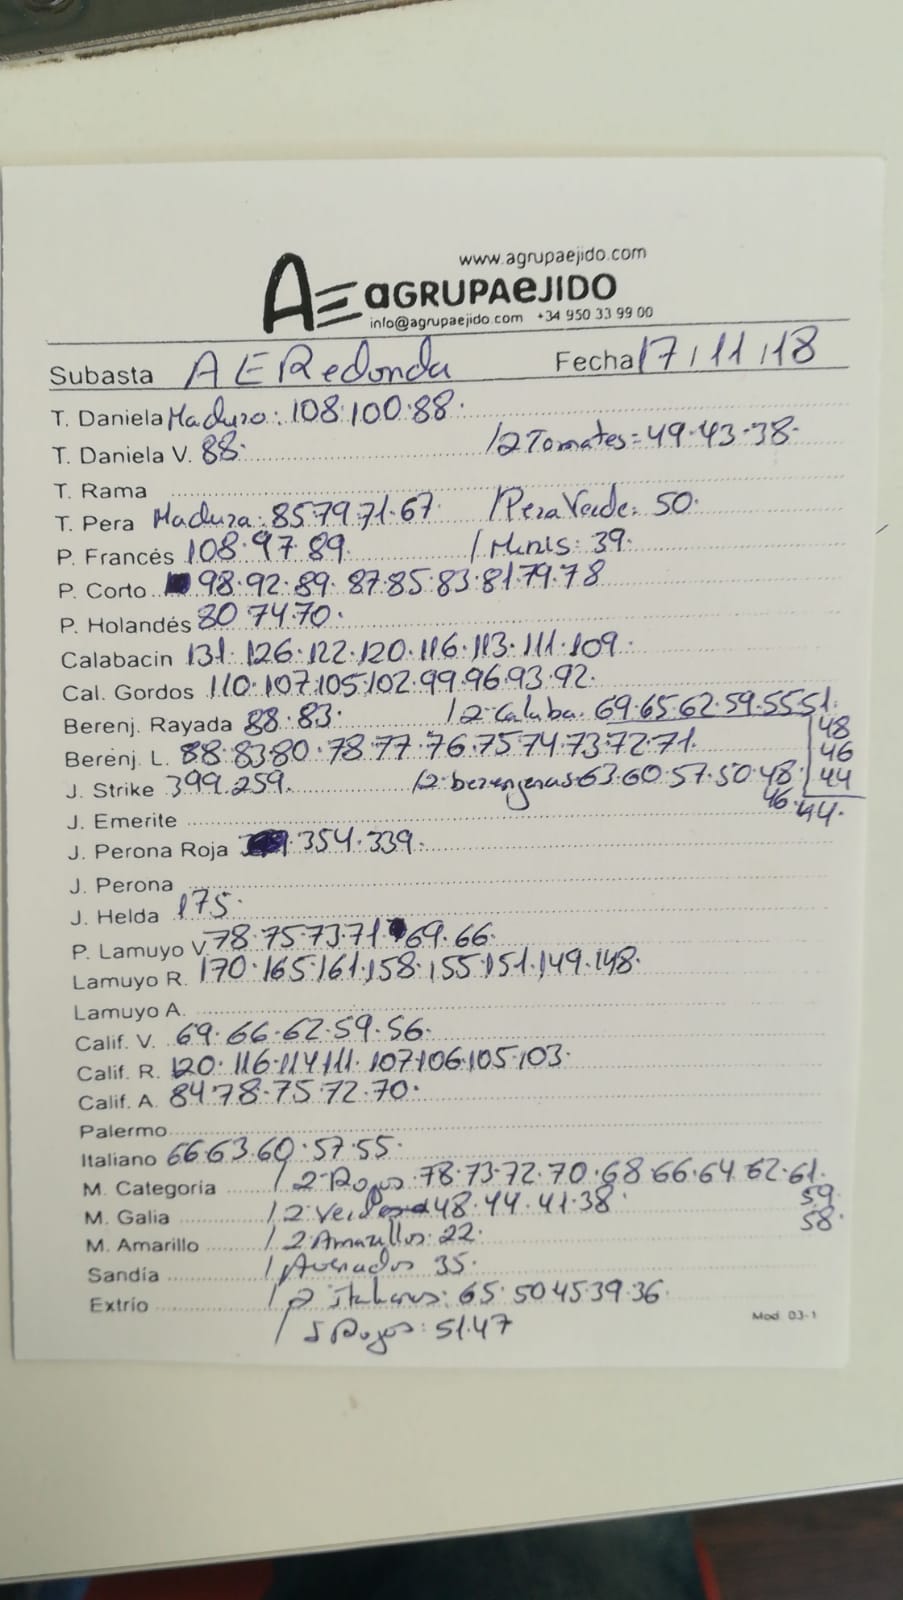 www.agrupaejido.com
AE aGRUPAeJIDO
info@agrupaejido.com +34 950 33 99 00
Subasta AE Redonda Fecha 17/11/18
T. Daniela Maduro: 108.100.88.
T. Daniela V. 88. /2 Tomates=49.43.38.
T. Rama
T. Pera Madura: 85.79.71.67 /Pera Verde: 50.
P. Francés 108.97.89. /Minis: 39.
P. Corto 98.92.89.87.85.83.81.79.78
P. Holandés 80.74.70.
Calabacin 131.126.122.120.116.113.111.109.
Cal. Gordos 110.107.105.102.99.96.93.92.
Berenj. Rayada 88.83. /2 Calaba. 69.65.62.59.55.51.
48
Berenj. L. 88.83.80.78.77.76.75.74.73.72.71. 46
J. Strike 399.259. /2 berenjenas 63.60.57.50.48. 44
46.44.
J. Emerite
J. Perona Roja 354.339.
J. Perona
J. Helda 175.
P. Lamuyo V 78.75.73.71.69.66.
Lamuyo R. 170.165.161.158.155.151.149.148.
Lamuyo A.
Calif. V. 69.66.62.59.56.
Calif. R. 120.116.114.111.107.106.105.103.
Calif. A. 84.78.75.72.70.
Palermo
Italiano 66.63.60.57.55.
M. Categoria /2 Rojos 78.73.72.70.68.66.64.62.61.
59
M. Galia /2 Verdes 48.44.41.38. 58.
M. Amarillo /2 Amarillos: 22.
Sandía / 35.
Extrio /2 Italianos: 65.50.45.39.36.
/ Rojos: 51.47
Mod. 03-1